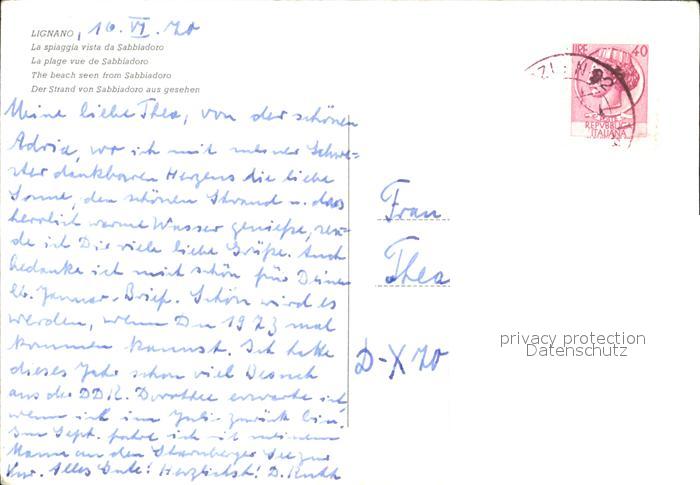 LIGNANO, 16. VI. 70
La spiaggia vista da Sabbiadoro
La plage vue de Sabbiadoro
The beach seen from Sabbiadoro
Der Strand von Sabbiadoro aus gesehen
Meine liebe Thea, von der schönen
Adria, wo ich mit meiner Schwe-
ster dankbaren Herzens die liebe
Sonne, den schönen Strand u. das
herrlich warme Wasser genieße, sen-
de ich Dir viele liebe Grüße. Auch
bedanke ich mich schön für Deinen
lb. Januar-Brief. Schön wird es
werden, wenn Du 1973 mal
kommen kannst. Ich hatte
dieses Jahr schon viel Besuch
aus der DDR. Dorothee erwarte ich,
wenn ich im Juli zurück bin.
Im Sept. fahre ich mit meinem
Mann an den Starnberger See zur
Kur. Alles Gute! Herzlichst! D. Ruth
LIRE 40
REPVBBLICA
ITALIANA
Frau
Thea
D-X 70
privacy protection
Datenschutz